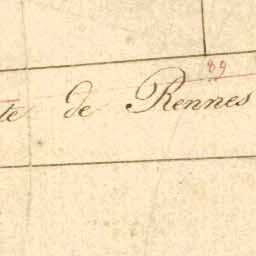 89
te de Rennes